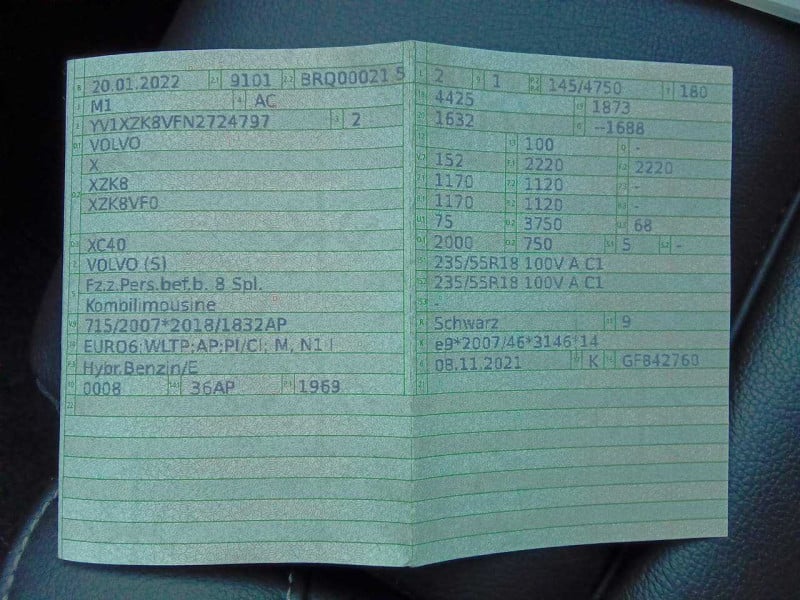 20.01.2022 9101 BRQ00021 5
M1 AC
YV1XZK8VFN2724797 2
VOLVO
X
XZK8
XZK8VF0
XC40
VOLVO (S)
Fz.z.Pers.bef.b. 8 Spl.
Kombilimousine
715/2007*2018/1832AP
EURO6;WLTP;AP;PI/CI; M, N1 I
Hybr.Benzin/E
0008 36AP 1969
2 1 145/4750 180
4425 1873
1632 --1688
100 -
152 2220 2220
1170 1120 -
1170 1120 -
75 3750 68
2000 750 5 -
235/55R18 100V A C1
235/55R18 100V A C1
-
Schwarz 9
e9*2007/46*3146*14
08.11.2021 K GF842760